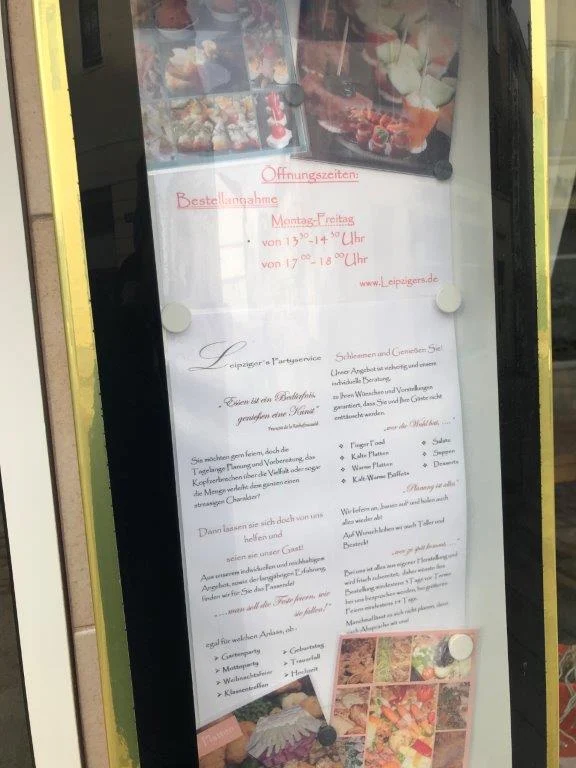 Öffnungszeiten:
Bestellannahme
Montag-Freitag
von 13³⁰-14³⁰ Uhr
von 17⁰⁰-18⁰⁰ Uhr
www.Leipzigers.de
Leipziger's Partyservice
„Essen ist ein Bedürfnis,
genießen eine Kunst"
Sie möchten gern feiern, doch die
Tagelange Planung und Vorbereitung, das
Kopfzerbrechen über die Vielfalt oder sogar
die Menge verleiht dem ganzen einen
stressigen Charakter?
Dann lassen sie sich doch von uns
helfen und
seien sie unser Gast!
Aus unserem individuellen und reichhaltigem
Angebot, sowie der langjährigen Erfahrung,
finden wir für Sie das Passende!
„....man soll die Feste feiern, wie
sie fallen!"
egal für welchen Anlass, ob -
➢ Gartenparty
➢ Mottoparty
➢ Weihnachtsfeier
➢ Klassentreffen
➢ Geburtstag
➢ Trauerfall
➢ Hochzeit
Schlemmen und Genießen Sie!
Unser Angebot ist vielseitig und unsere
individuelle Beratung,
zu Ihren Wünschen und Vorstellungen
garantiert, dass Sie und Ihre Gäste nicht
enttäuscht werden.
„wer die Wahl hat, ...."
❖ Finger Food
❖ Kalte Platten
❖ Warme Platten
❖ Kalt-Warme Buffets
❖ Salate
❖ Suppen
❖ Desserts
„Planung ist alles"
Wir liefern an „hausen auf" und holen auch
alles wieder ab!
Auf Wunsch leihen wir auch Teller und
Besteck!
„wer zu spät kommt, ....
Bei uns ist alles aus eigener Herstellung und
wird frisch zubereitet, daher würde Ihre
Bestellung mindestens 3 Tage vor Termin
bei uns besprochen werden, bei größeren
Feiern mindestens 14 Tage.
Manchmal lässt es sich nicht planen, dann
nach Absprache mit uns!
Platten